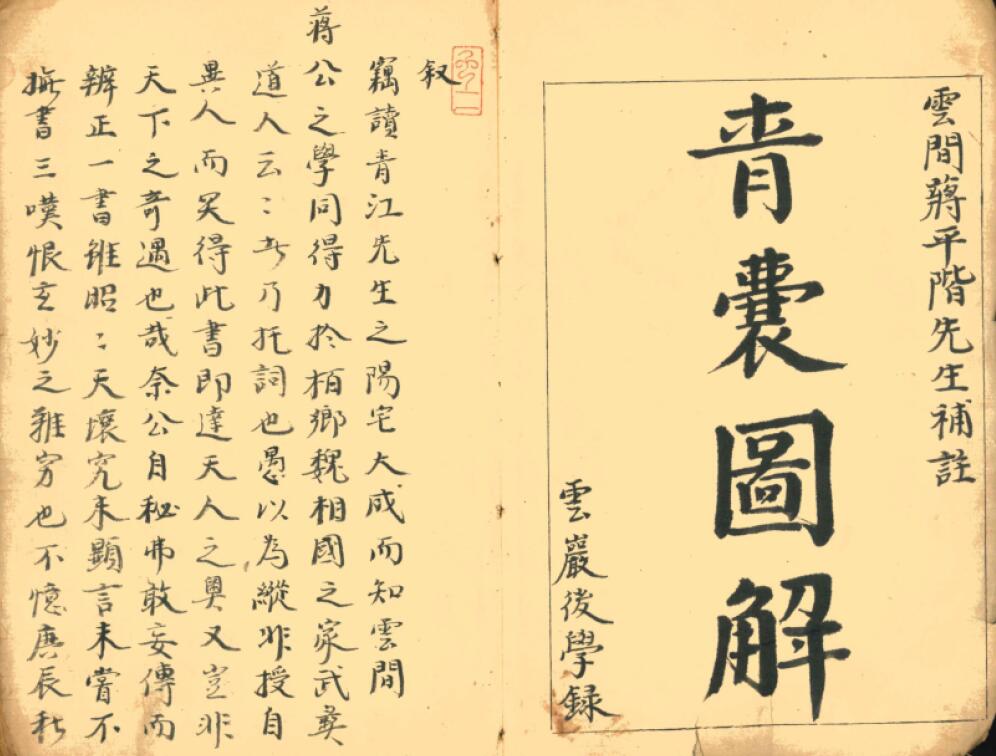 雲間蔣平階先生補註
青囊圖解
雲巖後學録
叙
竊讀青江先生之陽宅大成而知雲間
蔣公之學同得力於栢鄉魏相國之家武彞
道人云〻者乃托詞也愚以為縱非授自
異人而旲得此書即達天人之奥又豈非
天下之奇遇也哉奈公自秘弗敢妄傳而
辨正一書雖昭〻天壤究未顯言未嘗不
撫書三嘆恨玄妙之難穷也不憶庚辰秋